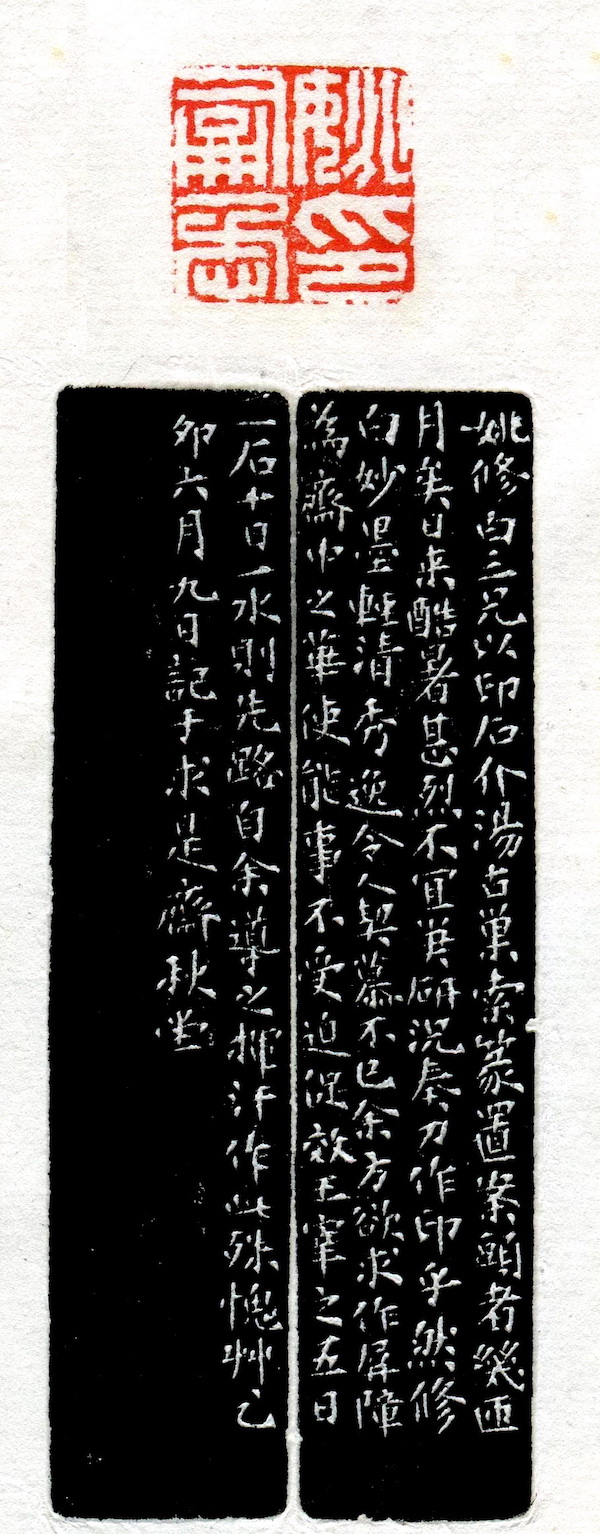 姚 印
姚修白三兄以印石介湯古巢索篆置案頭者幾匝
月矣日來酷暑甚烈不宜筆研況奏刀作印乎然修
白妙墨輕清秀逸令人契慕不已余方欲求作屏障
為齋中之華使能事不受迫促效王宰之五日
一石十日一水則先路自余導之揮汗作此殊愧艸乙
卯六月九日記于求是齋秋堂